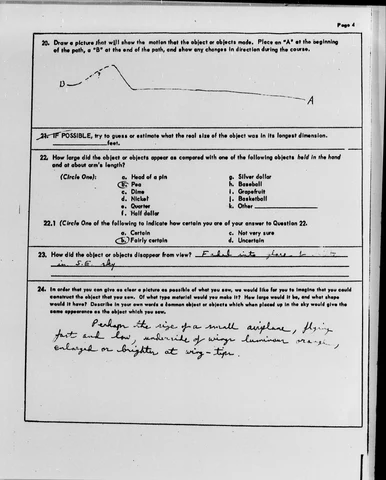 Page 4
20. Draw a picture that will show the motion that the object or objects made. Place an "A" at the beginning
of the path, a "B" at the end of the path, and show any changes in direction during the course.
B
A
21. IF POSSIBLE, try to guess or estimate what the real size of the object was in its longest dimension.
feet.
22. How large did the object or objects appear as compared with one of the following objects held in the hand
and at about arm's length?
(Circle One): a. Head of a pin g. Silver dollar
b. Pea h. Baseball
c. Dime i. Grapefruit
d. Nickel j. Basketball
e. Quarter k. Other
f. Half dollar
22.1 (Circle One of the following to indicate how certain you are of your answer to Question 22.
a. Certain c. Not very sure
b. Fairly certain d. Uncertain
23. How did the object or objects disappear from view? Faded into
in S.E. sky
24. In order that you can give as clear a picture as possible of what you saw, we would like for you to imagine that you could
construct the object that you saw. Of what type material would you make it? How large would it be, and what shape
would it have? Describe in your own words a common object or objects which when placed up in the sky would give the
same appearance as the object which you saw.
Perhaps the size of a small airplane, flying
fast and low, underside of wings luminous orange,
enlarged or brighter at wing-tips.